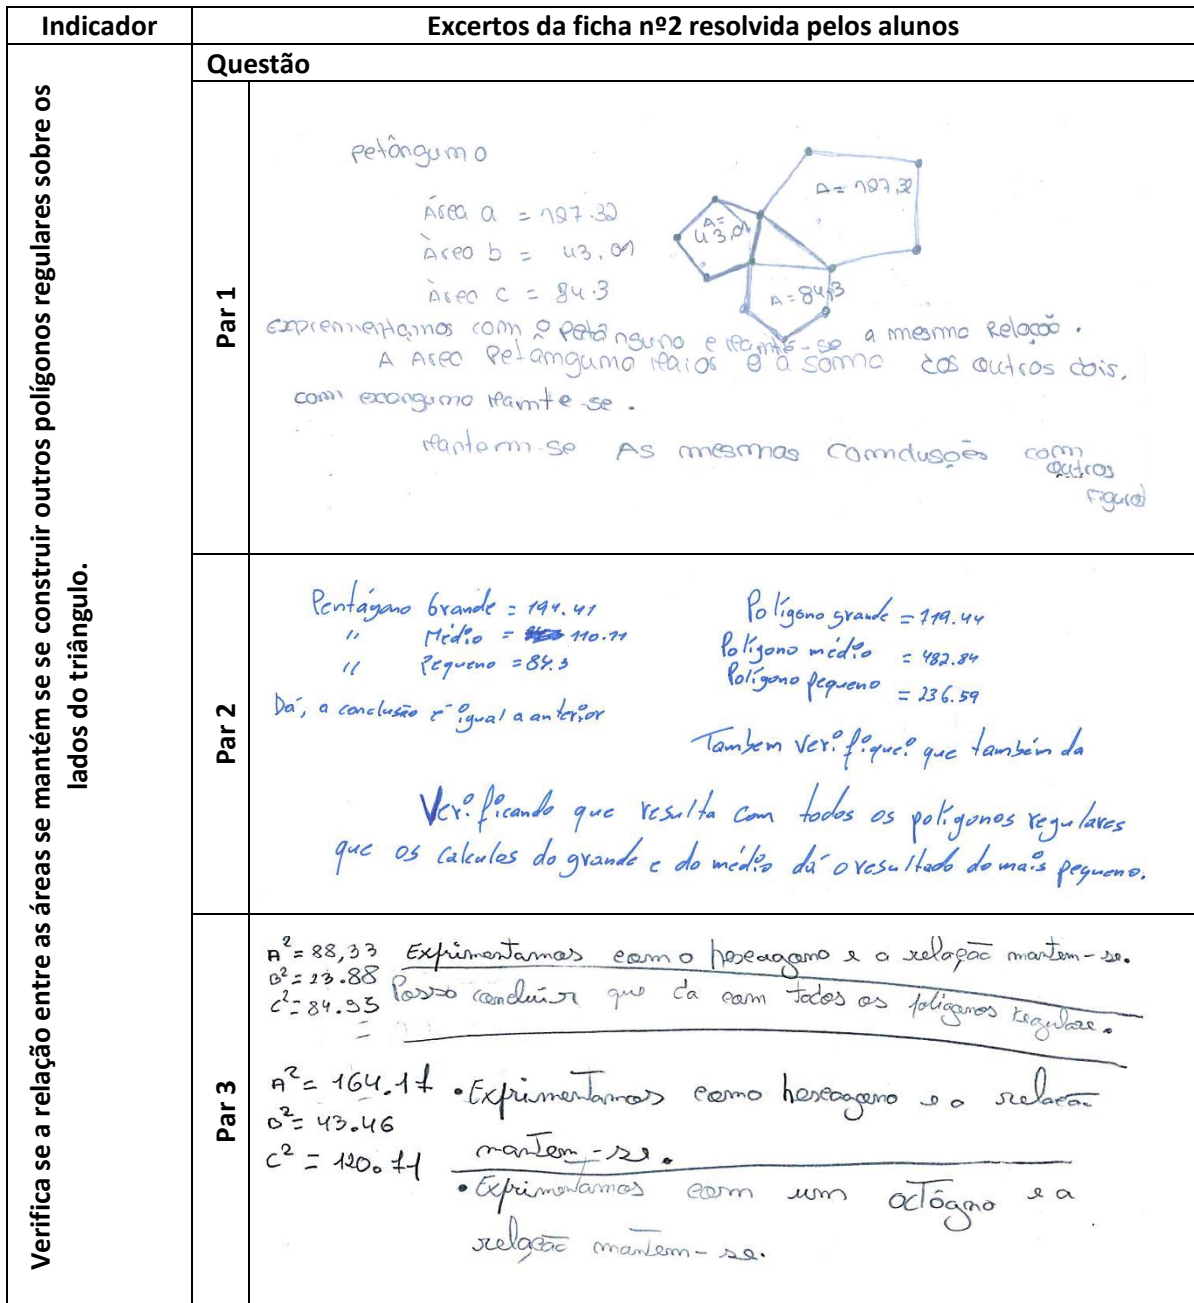 Indicador
Excertos da ficha nº2 resolvida pelos alunos
Verifica se a relação entre as áreas se mantém se se construir outros polígonos regulares sobre os
lados do triângulo.
Questão
Par 1
petângumo
Área a = 127.32
Área b = 43,01
Área c = 84.3
A= 43,01
A= 127,32
A= 84,3
a mesma Relação.
A Area Petamgumo Maior é a soma dos outros dois,
com exangumo mamte-se.
Mantem-se As mesmas comclusoēs com
outros
Figuras
Par 2
Pentágano Grande = 194.41
" Médio = 110.11
" Pequeno = 84.3
Dá, a conclusão é igual a anterior
Polígono grande = 719.44
Polígono médio = 482.84
Polígono pequeno = 236.59
Tambem verifiquei que também da
Verificando que resulta com todos os polígonos regulares
que os calculos do grande e do médio dá o resultado do mais pequeno.
Par 3
A²= 88,33 Exprimentamos com o hexagano e a relação mantem-se.
B²= 23.88
C²= 84.95 Posso concluir que da com todos os poligonos regulare.
=
A²= 164.17 • Exprimentamos como hexagono e a relação
B²= 43.46
C² = 120.71 mantem-se.
• Exprimentamos com um octógno e a
relação mantem-se.